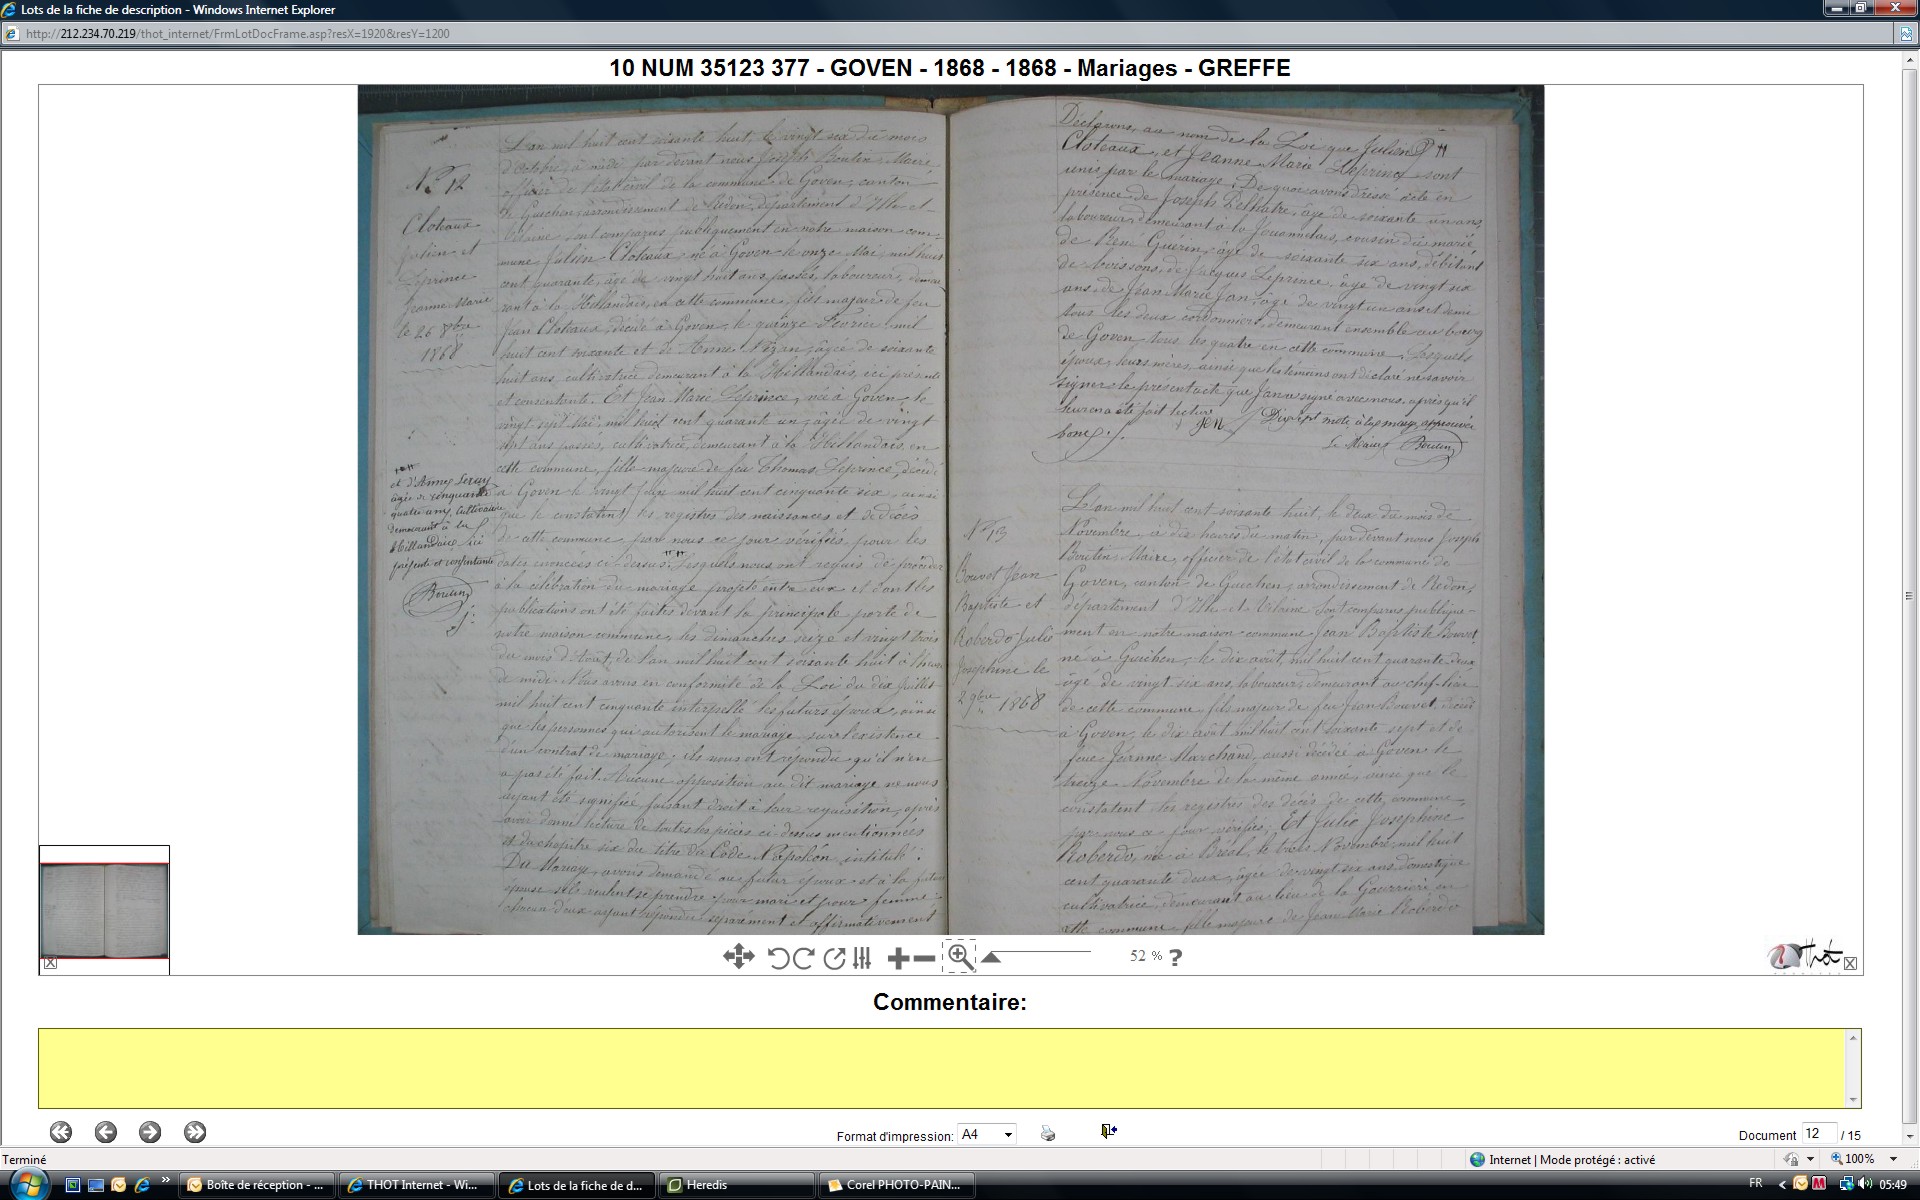 Lots de la fiche de description - Windows Internet Explorer
http://212.234.70.219/thot_internet/FrmLotDocFrame.asp?resX=1920&resY=1200
10 NUM 35123 377 - GOVEN - 1868 - 1868 - Mariages - GREFFE
L'an mil huit cent soixante huit, le vingt six du mois
d'octobre, à midi par devant nous Joseph Boutin, Maire,
officier de l'état civil de la commune de Goven, canton
de Guichen, arrondissement de Redon, département d'Ille et
Vilaine sont comparus publiquement en notre maison com-
mune Julien Cloteaux né à Goven le onze Mai mil huit
cent quarante, âgé de vingt huit ans passés, laboureur, demeu
rant à la Hillandais, en cette commune, fils majeur de feu
Jean Cloteaux, décédé à Goven, le quinze Février mil
huit cent soixante et de Anne Pizan, âgée de soixante
huit ans, cultivatrice demeurant à la Hillandais, ici présente
et consentante. Et Jean Marie Leprince, née à Goven, le
vingt sept Mai mil huit cent quarante un, âgée de vingt
sept ans passés, cultivatrice, demeurant à la Hillandais, en
cette commune, fille majeure de feu Thomas Leprince, décédé
à Goven le vingt Juin mil huit cent cinquante six, ainsi
que le constatent les registres des naissances et de décès
de cette commune, par nous ce jour vérifiés pour les
dates énoncées ci-dessus. Lesquels nous ont requis de procéder
à la célébration du mariage projeté entre eux et dont les
publications ont été faites devant la principale porte de
notre maison commune, les dimanches seize et vingt trois
du mois d'août, de l'an mil huit cent soixante huit à l'heure
de midi. Nous avons en conformité de la Loi du dix Juillet
mil huit cent cinquante interpellé les futurs époux, ainsi
que les personnes qui autorisent le mariage sur l'existence
d'un contrat de mariage. ils nous ont répondu qu'il n'en
a pas été fait. Aucune opposition au dit mariage ne nous
ayant été signifiée, faisant droit à leur réquisition, après
avoir donné lecture de toutes les pièces ci-dessus mentionnées
et du chapitre six du titre du Code Napoléon intitulé:
Du Mariage, avons demandé au futur époux et à la future
épouse s'ils veulent se prendre pour mari et pour femme
chacun d'eux ayant répondu séparément et affirmativement
N° 12
Cloteaux
Julien et
Leprince
Jeanne Marie
le 26 8bre
1868
et d'Anne Leray
âgée de cinquante
quatre ans, cultivatrice
demeurant à la
Hillandais, ici
présente et consentante
Boutin
Déclarons, au nom de la Loi que Julien
Cloteaux, et Jeanne Marie Leprince sont
unis par le mariage. De quoi avons dressé acte en
présence de Joseph Delhatre, âgé de soixante un ans,
laboureur, demeurant à la Jouannelais, cousin du marié,
de René Guérin, âgé de soixante six ans, débitant
de boissons, de Jacques Leprince, âgé de vingt six
ans, de Jean Marie Jan, âgé de vingt un ans et demi
tous les deux cordonniers, demeurant ensemble au bourg
de Goven tous les quatre en cette commune. Lesquels
époux, leurs mères, ainsi que les témoins ont déclaré ne savoir
signer le présent acte que Jan a signé avec nous, après qu'il
leur en a été fait lecture
Jan
Dix sept mots à la marge approuvés
Le Maire Boutin
N° 13
Bouvet Jean
Baptiste et
Roberdo Julie
Josephine le
2 9bre 1868
L'an mil huit cent soixante huit, le deux du mois de
Novembre, à dix heures du matin, par devant nous Joseph
Boutin Maire, officier de l'état civil de la commune de
Goven, canton de Guichen, arrondissement de Redon,
département d'Ille et Vilaine sont comparus publique-
ment en notre maison commune Jean Baptiste Bouvet
né à Guichen, le dix août, mil huit cent quarante deux
âgé de vingt six ans, laboureur, demeurant au chef-lieu
de cette commune, fils majeur de feu Jean Bouvet décédé
à Goven, le dix août mil huit cent soixante sept et de
feue Jeanne Marchand, aussi décédée à Goven le
treize Novembre de la même année, ainsi que le
constatent les registres des décès de cette commune
par nous ce jour vérifiés; Et Julie Josephine
Roberdo, née à Bréal, le trois Novembre mil huit
cent quarante deux, âgée de vingt six ans, domestique
cultivatrice, demeurant au lieu de la Gourrière en
cette commune, fille majeure de Jean Marie Roberdo
52 %
Thot
Commentaire:
Format d'impression: A4
Document 12 / 15
Terminé
Internet | Mode protégé : activé
100%
Boîte de réception - ...
THOT Internet - Wi...
Lots de la fiche de d...
Heredis
Corel PHOTO-PAIN...
FR
05:49